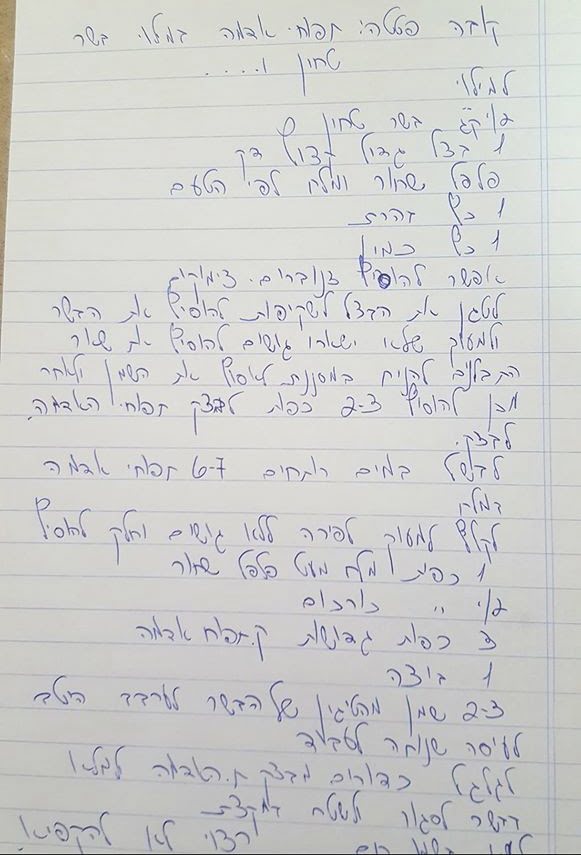 קובה פטטה: תפוחי אדמה במלוי בשר
טחון ו.....
למילוי
בשר טחון
1 בצל גדול קצוץ דק
פלפל שחור ומלח לפי הטעם
1 כף בהרת
1 כף כמון
אפשר להוסיף צנוברים. צימוקים
לטגן את הבצל לשקיפות להוסיף את הבשר
ולמעוך שלא ישארו גושים להוסיף את שאר
התבלינים להניח במסננת לאסוף את השמן ולאחר
מכן להוסיף 2-3 כפות לבצק תפוחי האדמה.
לבצק:
לבשל במים רותחים 6-7 תפוחי אדמה
במלח
לקלף למעוך לפירה ללא גושים וחלק להוסיף
1 כפית מלח מעט פלפל שחור
" כורכום
3 כפות גדושות ק.תפוח אדמה
1 ביצה
2-3 שמן מהטיגון של הבשר לערבב היטב
לעיסה שנוחה לעבוד
לגלגל כדורים מבצק ת.האדמה למלא
בבשר לסגור ולשטח במקצת
רצוי לא להקפיא.